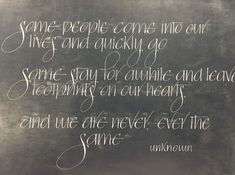 some people come into our
lives and quickly go
Some stay for awhile and leave
footprints on our hearts
and we are never, ever the
same
unknown